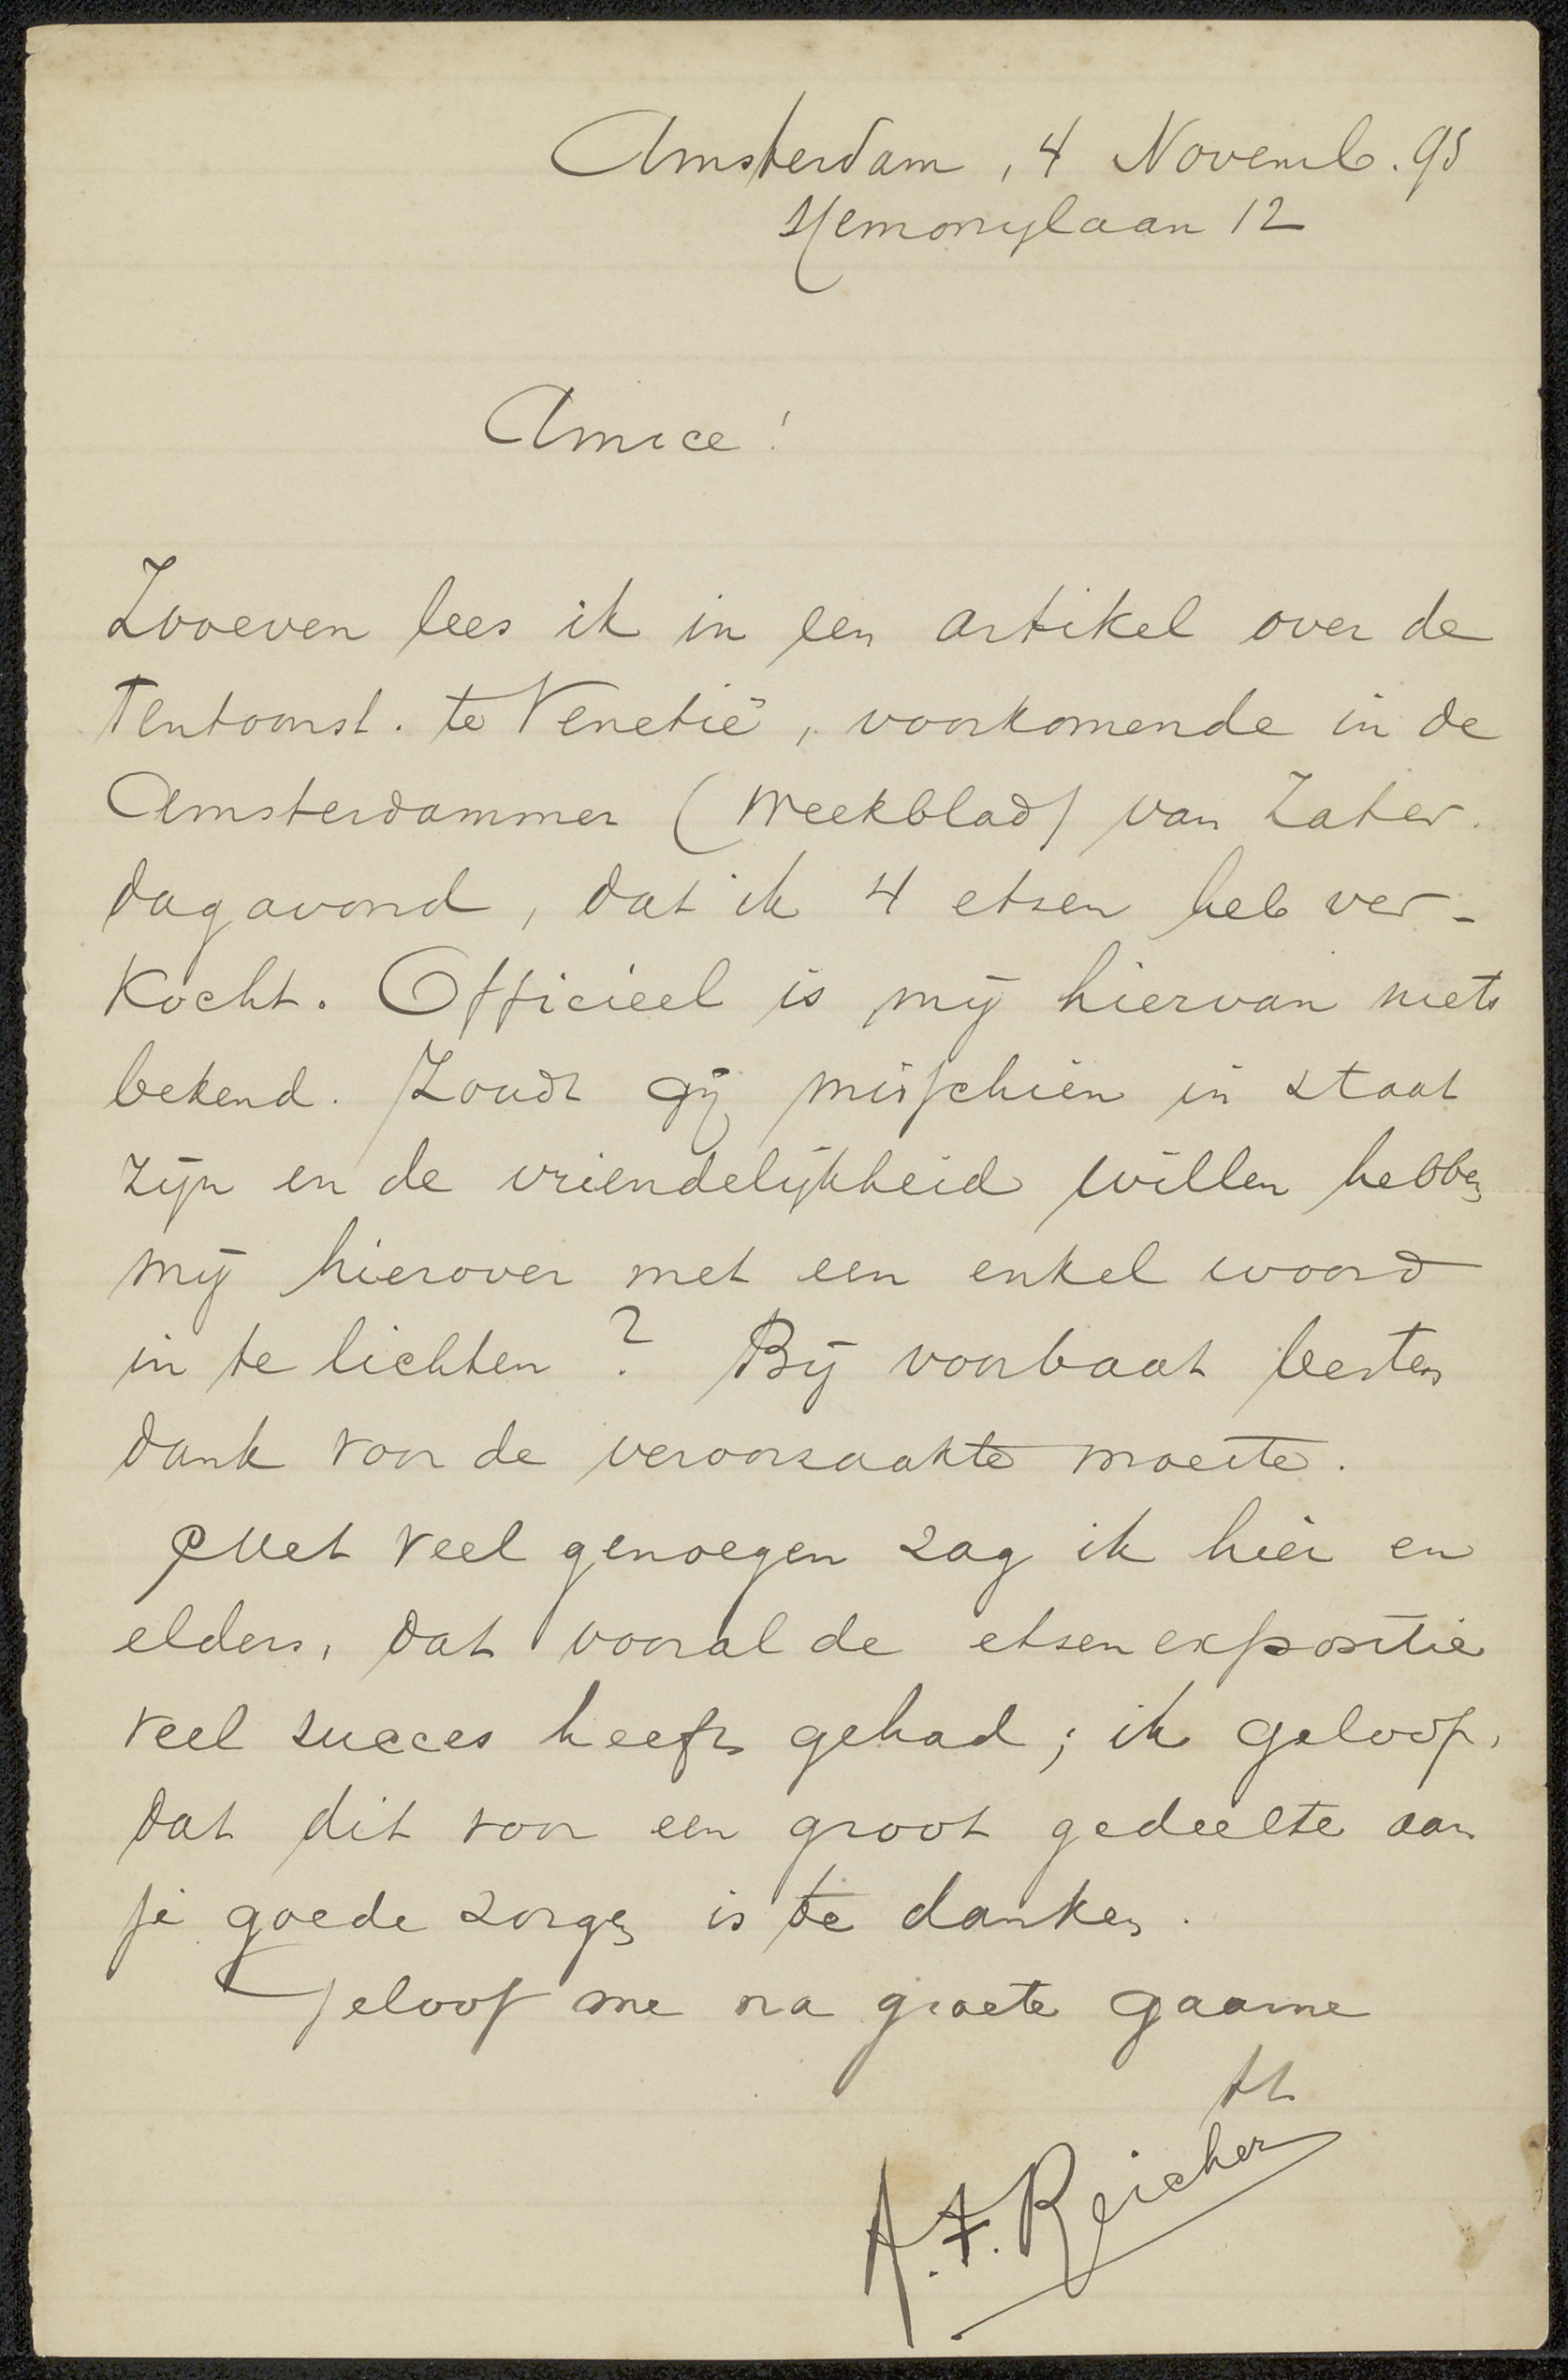 Amsterdam, 4 Novemb. 95
Hemonylaan 12
Amice!
Zooeven lees ik in een artikel over de
Tentoonst. te Venetië, voorkomende in de
Amsterdammer (Weekblad) van Zater-
dagavond, dat ik 4 etsen heb ver-
kocht. Officieel is mij hiervan niets
bekend. Zoudt gij misschien in staat
zijn en de vriendelijkheid willen hebben
mij hierover met een enkel woord
in te lichten? Bij voorbaat besten
dank voor de veroorzaakte moeite.
Met veel genoegen zag ik hier en
elders, dat vooral de etsenexpositie
veel succes heeft gehad; ik geloof,
dat dit voor een groot gedeelte aan
je goede zorgen is te danken.
Geloof me na groete gaarne
tt
A.F. Reicher